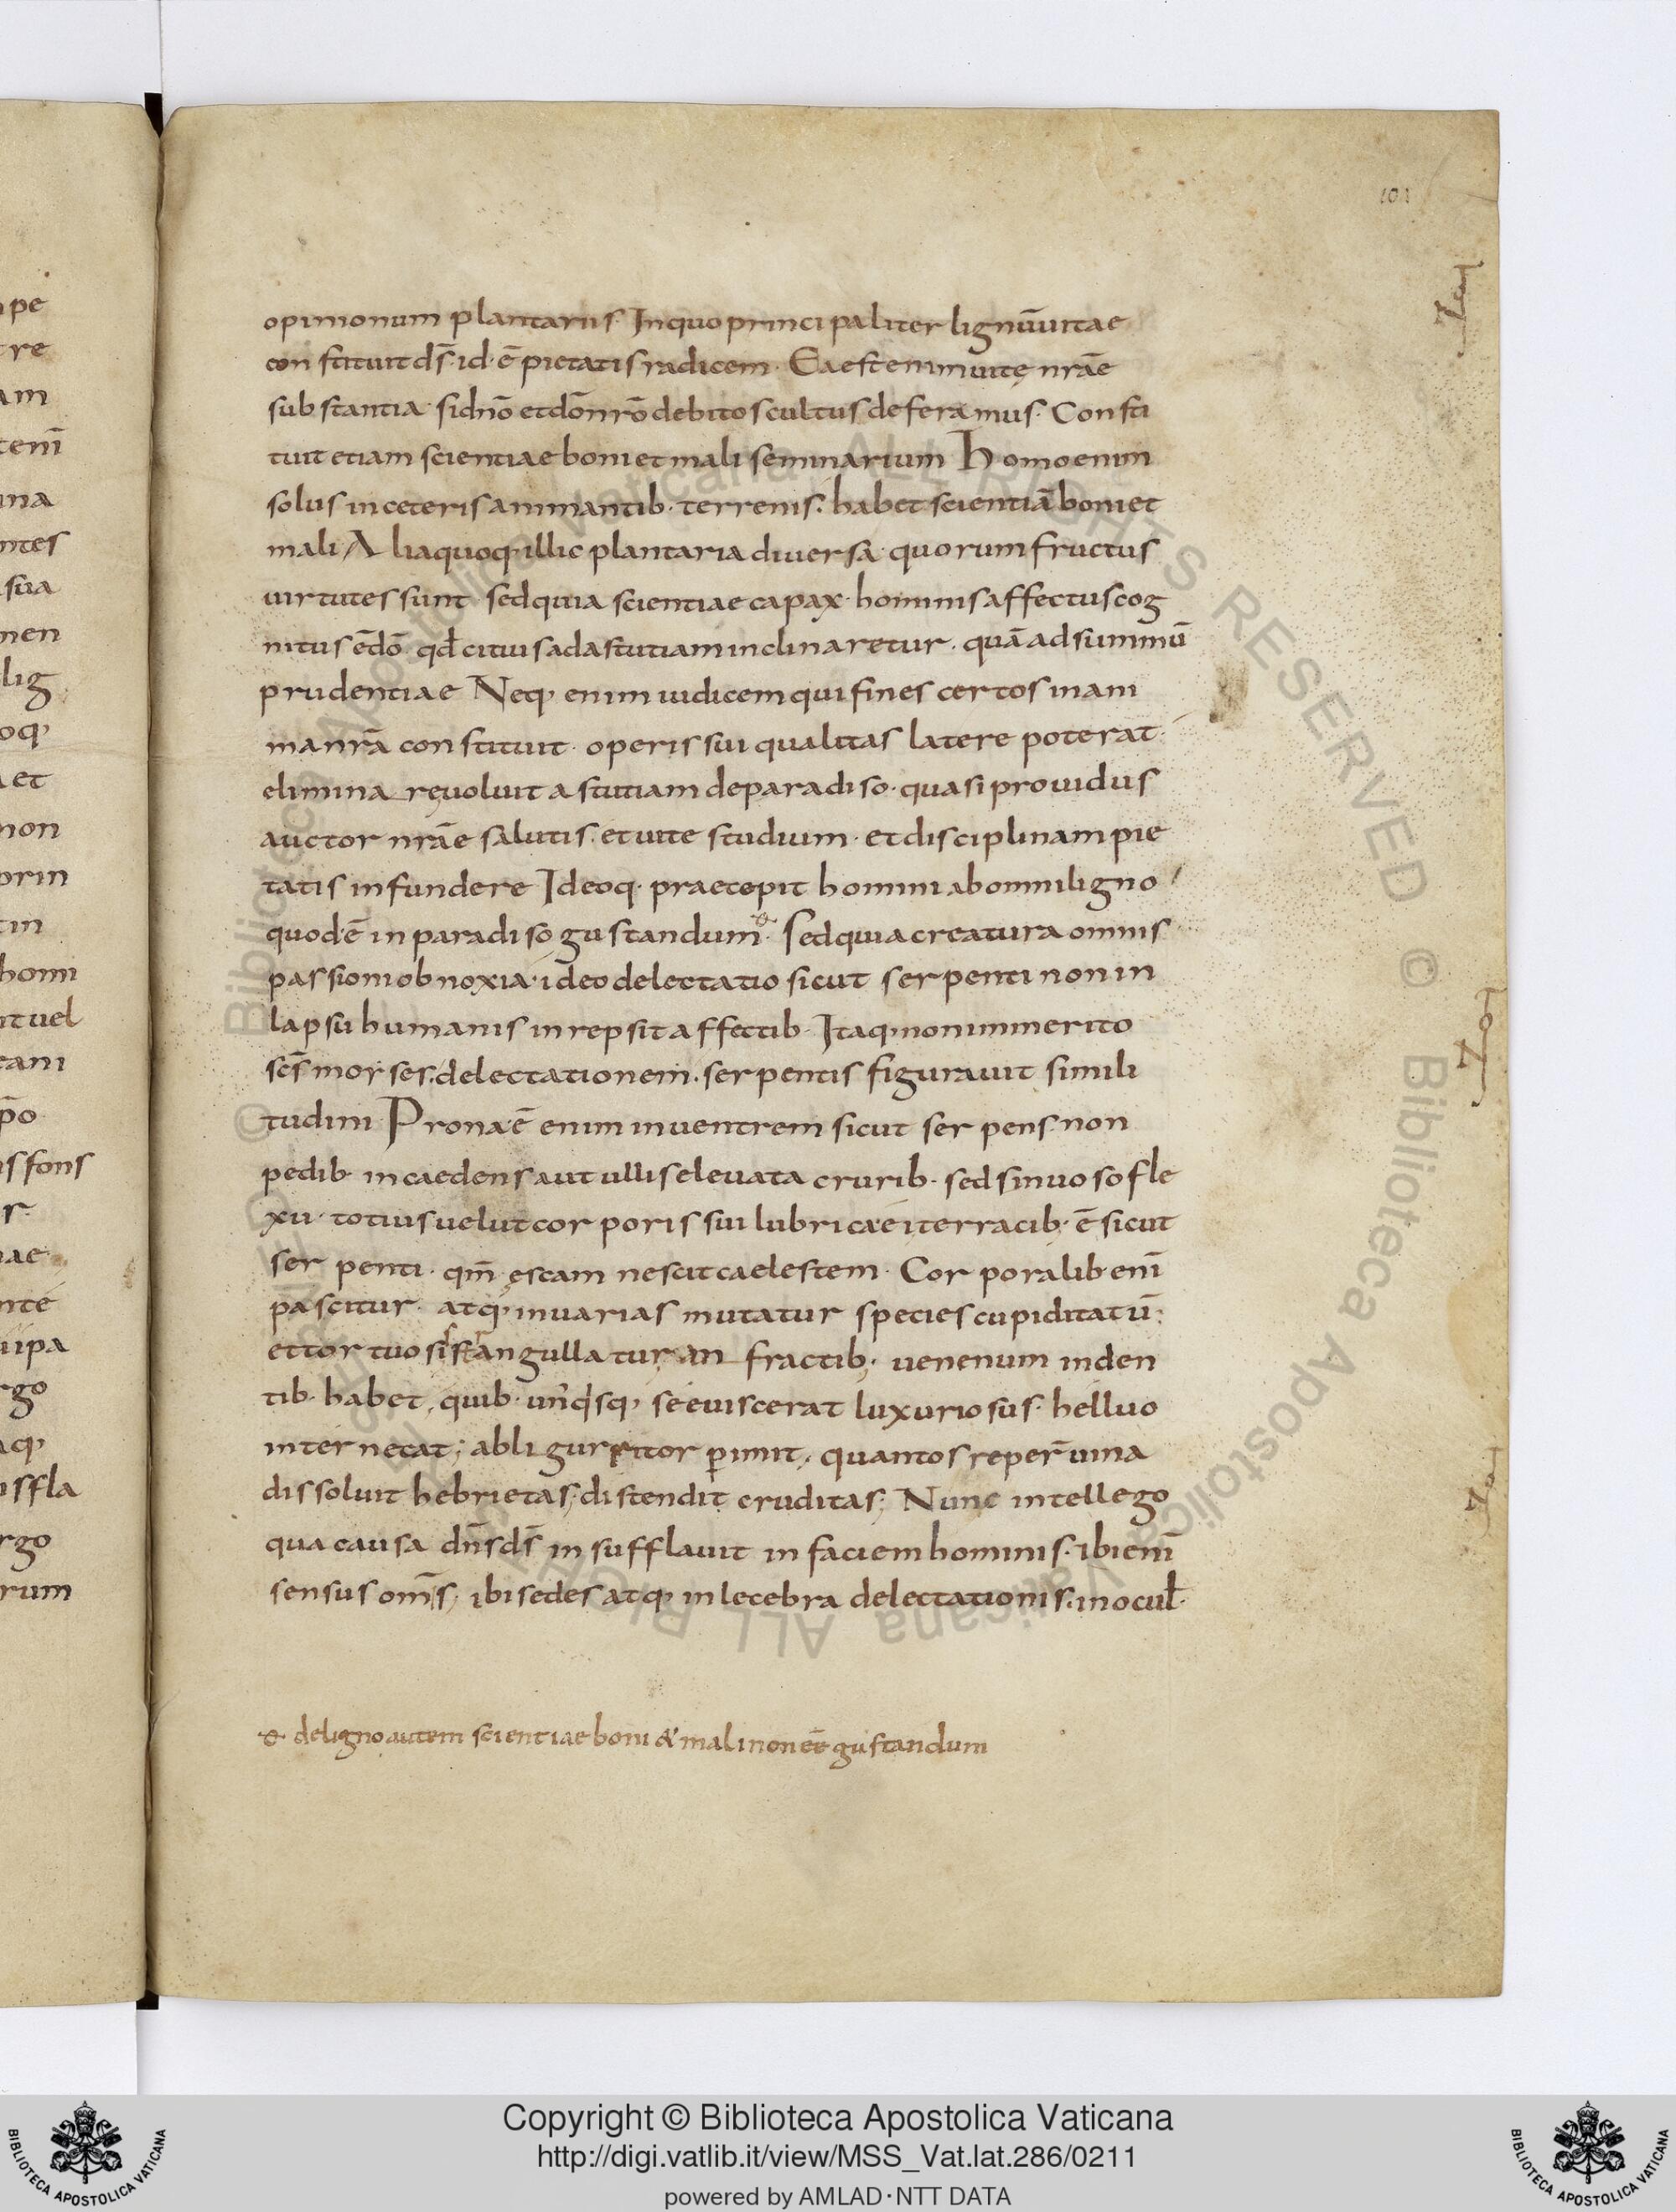 pe
re
am
tenī
ina
ntes
sua
men
lig
oq,
et
non
prin
tin
homi
nt uel
eani
p̄o
is fons
r.
nae
nte
uipa
rgo
aq,
isffla
rgo
rum
101
opinionum plantariis. Inquo principaliter lignūuitae
constituit ds̄. id. ē pietatis radicem. Ea est enim uitę nrāe
substantia. sidnō etdōnrō debitos cultus deferamus. Consti
tuit etiam scientiae boni et mali seminarium Homo enim
solus inceteris animantib. terrenis. habet scientiā boni et
mali Alia quoq, illic plantaria diuersa. quorum fructus
uirtutes sunt sed quia scientiae capax. hominis affectus cog
nitus ēdō qd̄ citius ad astutiam inclinaretur. quā ad summū
prudentiae Neq, enim iudicem qui fines certos inani
manrā constituit. operis sui qualitas latere poterat.
elimina reuoluit astutiam deparadiso. quasi prouidus
auctor nrāe salutis. et uite studium. et disciplinam pie
tatis infundere Ideoq. praecepit homini abomniligno
quod ē inparadiso gustandum. Sed quia creatura omnis
passioni obnoxia. ideo delectatio sicut serpenti non in
lapsu humanis inrepsit affectib. Itaq, non inmerito
scs̄ morses. delectationem. serpentis figurauit simili
tudini Prona ē enim inuentrem sicut serpens. non
pedib. incaedens aut ullis eleuata crurib. sed sinuoso fle
xu. totius uelut corporis sui lubricae iterra cib. ē sicut
serpenti. qm̄ escam nescit caelestem. Corporalib. enī
pascitur. atq, inuarias mutatur species cupiditatū.
ettortuosis strangullatur anfractib. uenenum inden
tib. habet, quib. un̄qsq, se euiscerat luxuriosus. helluo
internecat; abliguritor p̄imit, quantos reper̄ uina
dissoluit hebrietas; distendit cruditas; Nunc intellego
qua causa dn̄s ds̄ insufflauit infaciem hominis. ibi enī
sensus om̄s, ibi sedes atq, inlecebra delectationis. inocul̄.
deligno autem scientiae boni & mali non eē gustandum
Copyright © Biblioteca Apostolica Vaticana
http://digi.vatlib.it/view/MSS_Vat.lat.286/0211
powered by AMLAD·NTT DATA
BIBLIOTECA APOSTOLICA VATICANA
BIBLIOTECA APOSTOLICA VATICANA
© Biblioteca Apostolica Vaticana ALL RIGHTS RESERVED © Biblioteca Apostolica Vaticana ALL RIGHTS RESERVED